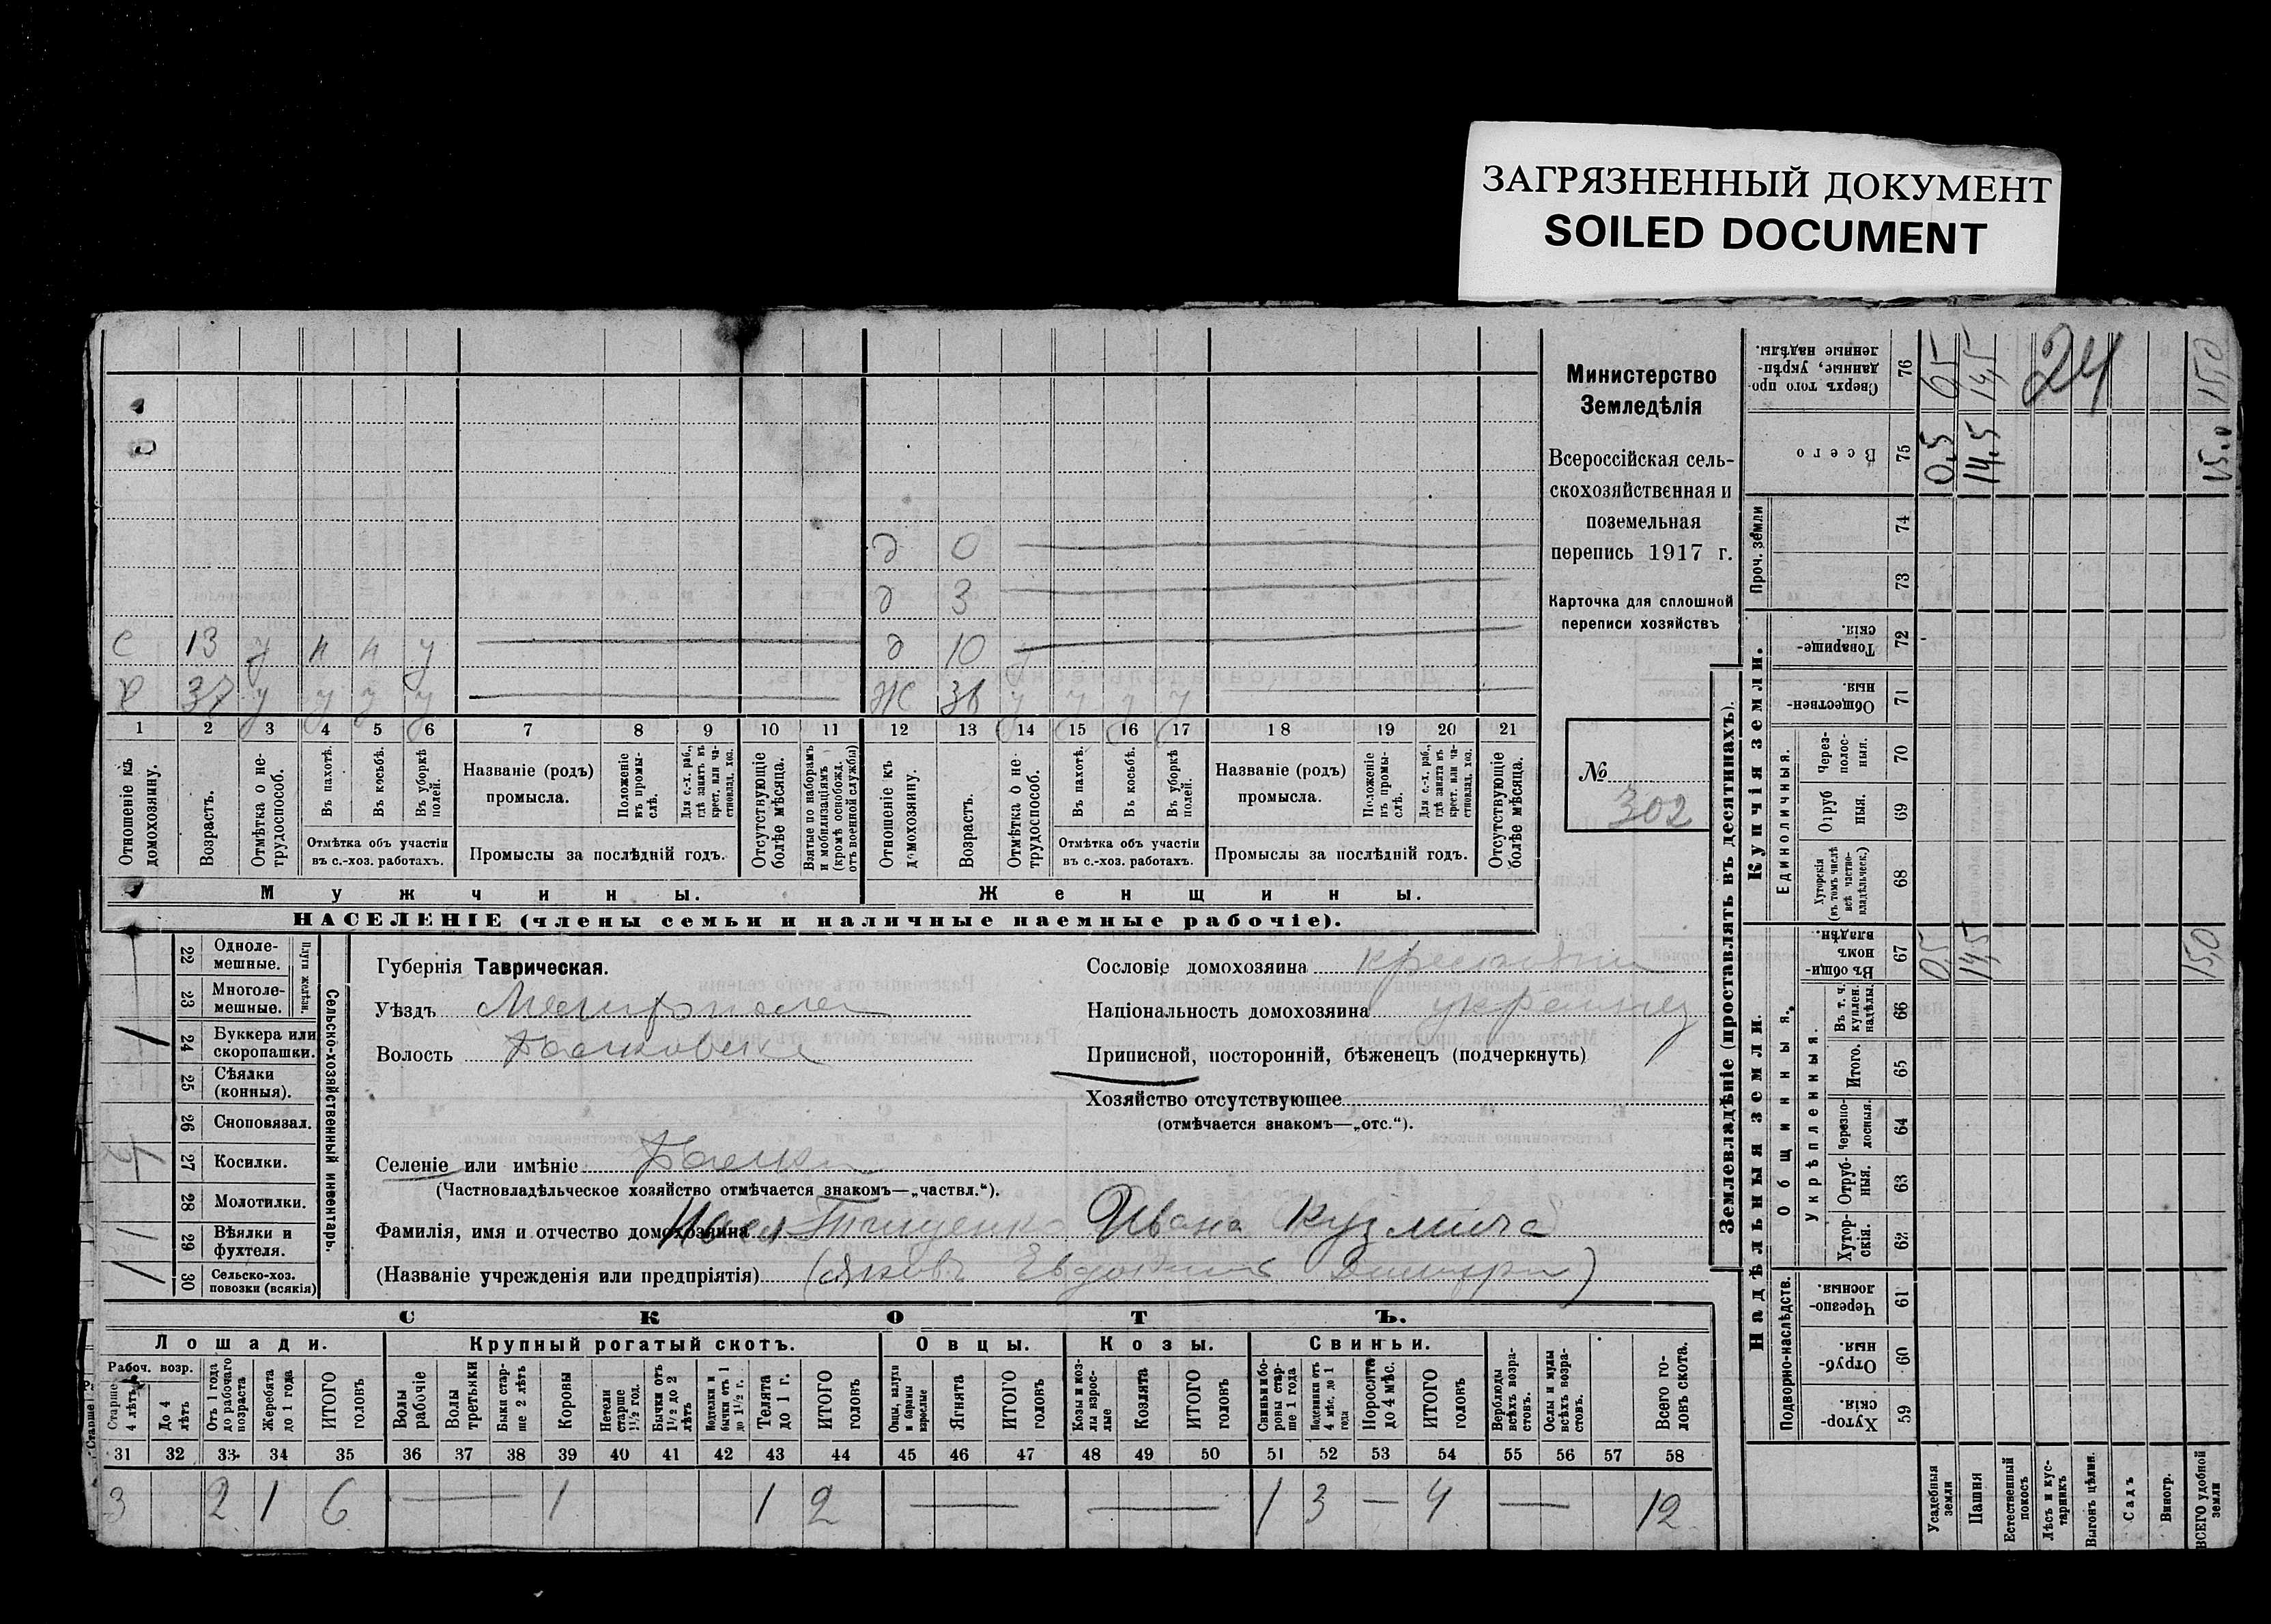 ЗАГРЯЗНЕННЫЙ ДОКУМЕНТ
SOILED DOCUMENT
д 0
д 3
с 13 у н н у д 10 у
х 37 у у у у ж 36 у у у у
1 2 3 4 5 6 7 8 9 10 11 12 13 14 15 16 17 18 19 20 21
Отношеніе къ домохозяину.
Возрастъ.
Отмѣтка о не-трудоспособ.
Въ пахотѣ.
Въ косьбѣ.
Въ уборкѣ полей.
Отмѣтка объ участіи
въ с.-хоз. работахъ.
Названіе (родъ)
промысла.
Положеніе въ промы-слѣ.
Для с.-х. раб., гдѣ занятъ въ крест. или ча-стновлад. хоз.
Промыслы за послѣдній годъ.
Отсутствующіе болѣе мѣсяца.
Взятые по наборамъ и мобилизаціямъ (кромѣ освобожд. отъ военной службы)
Отношеніе къ домохозяину.
Возрастъ.
Отмѣтка о не-трудоспособ.
Въ пахотѣ.
Въ косьбѣ.
Въ уборкѣ полей.
Отмѣтка объ участіи
въ с.-хоз. работахъ.
Названіе (родъ)
промысла.
Положеніе въ промы-слѣ.
Для с.-х. раб., гдѣ занята въ крест. или ча-стновлад. хоз.
Промыслы за послѣдній годъ.
Отсутствующіе болѣе мѣсяца.
Мужчины.
Женщины.
НАСЕЛЕНІЕ (члены семьи и наличные наемные рабочіе).
Министерство
Земледѣлія
Всероссійская сель-
скохозяйственная и
поземельная
перепись 1917 г.
Карточка для сплошной
переписи хозяйствъ
№
302
22 Одноле-мешные.
23 Многоле-мешные.
Плуги желѣзн.
24 Буккера или скоропашки.
25 Сѣялки (конныя).
26 Сноповязал.
27 Косилки.
28 Молотилки.
29 Вѣялки и фухтеля.
30 Сельско-хоз. повозки (всякія)
Сельско-хозяйственный инвентарь.
Губернія Таврическая.
Уѣздъ Мелитополь
Волость Балковск
Сословіе домохозяина крестьянин
Національность домохозяина украинец
Приписной, посторонній, бѣженецъ (подчеркнуть)
Хозяйство отсутствующее
(отмѣчается знакомъ—„отс.“).
Селеніе или имѣніе Балки
(Частновладѣльческое хозяйство отмѣчается знакомъ—„частвл.“).
Фамилія, имя и отчество домохозяина Тищенко Ивана Кузмича
(Названіе учрежденія или предпріятія)
СКОТЪ.
Лошади. Крупный рогатый скотъ. Овцы. Козы. Свиньи.
Рабоч. возр.
Старше 4 лѣтъ
До 4 лѣтъ
Отъ 1 года до рабочаго возраста
Жеребята до 1 года
ИТОГО головъ
Волы рабочіе
Волы третьяки
Быки стар-ше 2 лѣтъ
Коровы
Нетели старше 1½ год.
Бычки отъ 1½ до 2 лѣтъ
Подтелки и бычки отъ 1 до 1½ г.
Телята до 1 г.
ИТОГО головъ
Овцы, валухи и бараны взрослые
Ягнята
ИТОГО головъ
Козы и коз-лы взрос-лые
Козлята
ИТОГО головъ
Свиньи и бо-ровы стар-ше 1 года
Подсвинки отъ 4 мѣс. до 1 года
Поросята до 4 мѣс.
ИТОГО головъ
Верблюды всѣхъ возра-стовъ.
Ослы и мулы всѣхъ возра-стовъ.
Всего го-ловъ скота.
31 32 33 34 35 36 37 38 39 40 41 42 43 44 45 46 47 48 49 50 51 52 53 54 55 56 57 58
3 2 1 6 — 1 1 2 — — 1 3 — 4 — 12
Землевладѣніе (проставлять въ десятинахъ).
Надѣльныя земли.
Купчія земли.
Проч. земли
Подворно-наслѣдств.
Общинныя.
Укрѣпленныя.
Единоличныя.
Хутор-скія. 59
Отруб-ныя. 60
Черезпо-лосныя. 61
Хутор-скія. 62
Отруб-ныя. 63
Черезпо-лосныя. 64
Итого. 65
Въ т. ч. куплен. надѣлы. 66
Въ общин-номъ владѣн. 67
Хуторскія (въ томъ числѣ всѣ частно-владѣльческ.) 68
Отруб ныя. 69
Через-полос-ныя. 70
Обществен-ныя. 71
Товарище-скія. 72
73
74
Всего 75
Сверхъ того про-данные, укрѣп-ленные надѣлы. 76
Усадебныя земли 0,5 0,5 0,5
Пашня 14,5 14,5 14,5
Естественный покосъ
Лѣсъ и кус-тарникъ
Выгонъ цѣлин.
Садъ
Виногр.
ВСЕГО удобной земли 15,0 15.0 15,0
24